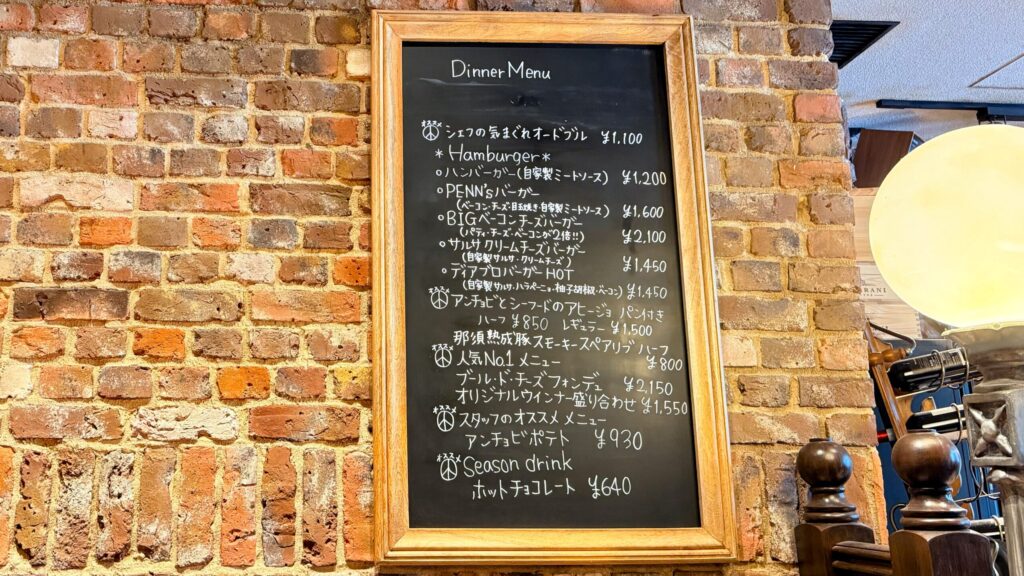 Dinner Menu
オススメ シェフの気まぐれオードブル ¥1,100
*Hamburger*
○ハンバーガー(自家製ミートソース) ¥1,200
○PENN'sバーガー
(ベーコン・チーズ・目玉焼き・自家製ミートソース) ¥1,600
○BIGベーコンチーズバーガー
(パティ・チーズ・ベーコンが2倍!!) ¥2,100
○サルサクリームチーズバーガー
(自家製サルサ・クリームチーズ) ¥1,450
○ディアブロバーガー HOT
(自家製サルサ・ハラペーニョ・柚子胡椒・ベーコン) ¥1,450
オススメ アンチョビとシーフードのアヒージョ パン付き
ハーフ ¥850 レギュラー ¥1,500
那須熟成豚スモーキースペアリブ ハーフ
¥800
オススメ 人気No.1メニュー
ブール・ド・チーズフォンデュ ¥2,150
オリジナルウインナー盛り合わせ ¥1,550
オススメ スタッフのオススメメニュー
アンチョビポテト ¥930
オススメ Season drink
ホットチョコレート ¥640